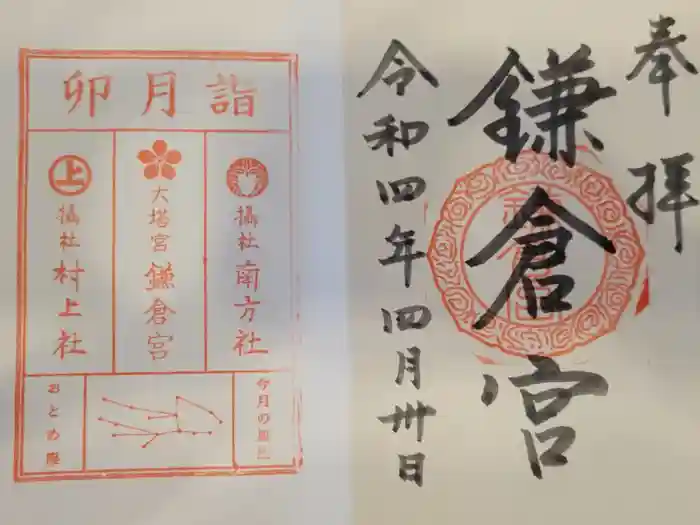 奉拝
鎌倉宮
令和四年四月卅日
卯月詣
摂社 南方社
大塔宮 鎌倉宮
上
摂社 村上社
今月の星座
おとめ座